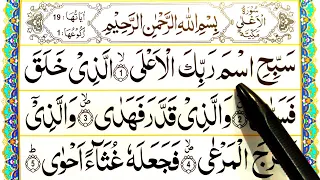 سُوْرَةُ الْاَعْلٰى مَكِّيَّةٌ
بِسْمِ اللهِ الرَّحْمٰنِ الرَّحِيْمِ
اٰيَاتُهَا: 19
رُكُوْعُهَا: 1
سَبِّحِ اسْمَ رَبِّكَ الْاَعْلَى ۙ‏﴿1﴾ الَّذِىْ خَلَقَ
وَالَّذِىْ قَدَّرَ فَهَدٰى ۙ‏﴿3﴾ وَالَّذِىْۤ
الْمَرْعٰى ۙ‏﴿4﴾ فَجَعَلَهٗ غُثَآءً اَحْوٰى ؕ‏﴿5﴾